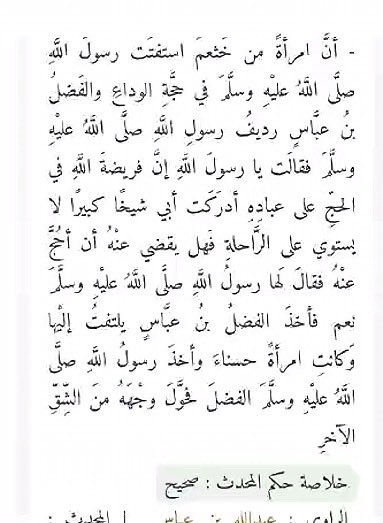 - أنَّ امرأةً من خَثعمَ استفتَت رسولَ اللَّهِ
صلَّى اللَّهُ عليْهِ وسلَّمَ في حجَّةِ الوداعِ والفَضلُ
بنُ عبَّاسٍ رديفُ رسولِ اللَّهِ صلَّى اللَّهُ عليْهِ
وسلَّمَ فقالَت يا رسولَ اللَّهِ إنَّ فريضةَ اللَّهِ في
الحجِّ على عبادِهِ أدرَكت أبي شيخًا كبيرًا لا
يستوي على الرَّاحلةِ فَهل يقضي عنْهُ أن أحُجَّ
عنْهُ فقالَ لَها رسولُ اللَّهِ صلَّى اللَّهُ عليْهِ وسلَّمَ
نعم فأخذَ الفضلُ بنُ عبَّاسٍ يلتفتُ إليْها
وَكانتِ امرأةً حسناءَ وأخذَ رسولُ اللَّهِ صلَّى
اللَّهُ عليْهِ وسلَّمَ الفضلَ فحوَّلَ وجْهَهُ منَ الشِّقِّ
الآخرِ
خلاصة حكم المحدث : صحيح
الراوي : عبدالله بن عباس | المحدث :